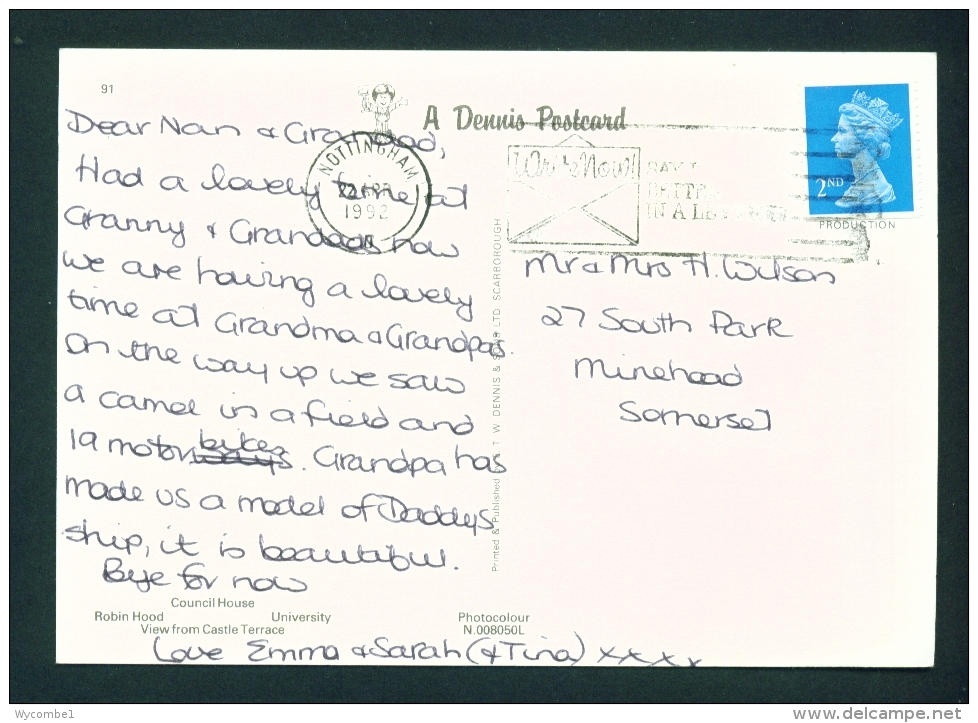 91
A Dennis Postcard
NOTTINGHAM
22 APR
1992
Write Now!
SAY IT
BETTER
IN A LETTER
2ND
PRODUCTION
Dear Nan & Grandad,
Had a lovely time at
Granny & Grandads now
we are having a lovely
time at Grandma & Grandpas.
On the way up we saw
a camel in a field and
19 motorbikes. Grandpa has
made us a model of Daddys
ship, it is beautiful.
Bye for now
Love Emma & Sarah (& Tina) xxxx
Mr & Mrs H. Wilson
27 South Park
Minehead
Somerset
Printed & Published T W DENNIS & SONS LTD. SCARBOROUGH
Council House
Robin Hood University
View from Castle Terrace
Photocolour
N.008050L
Wycombe1
www.delcampe.net